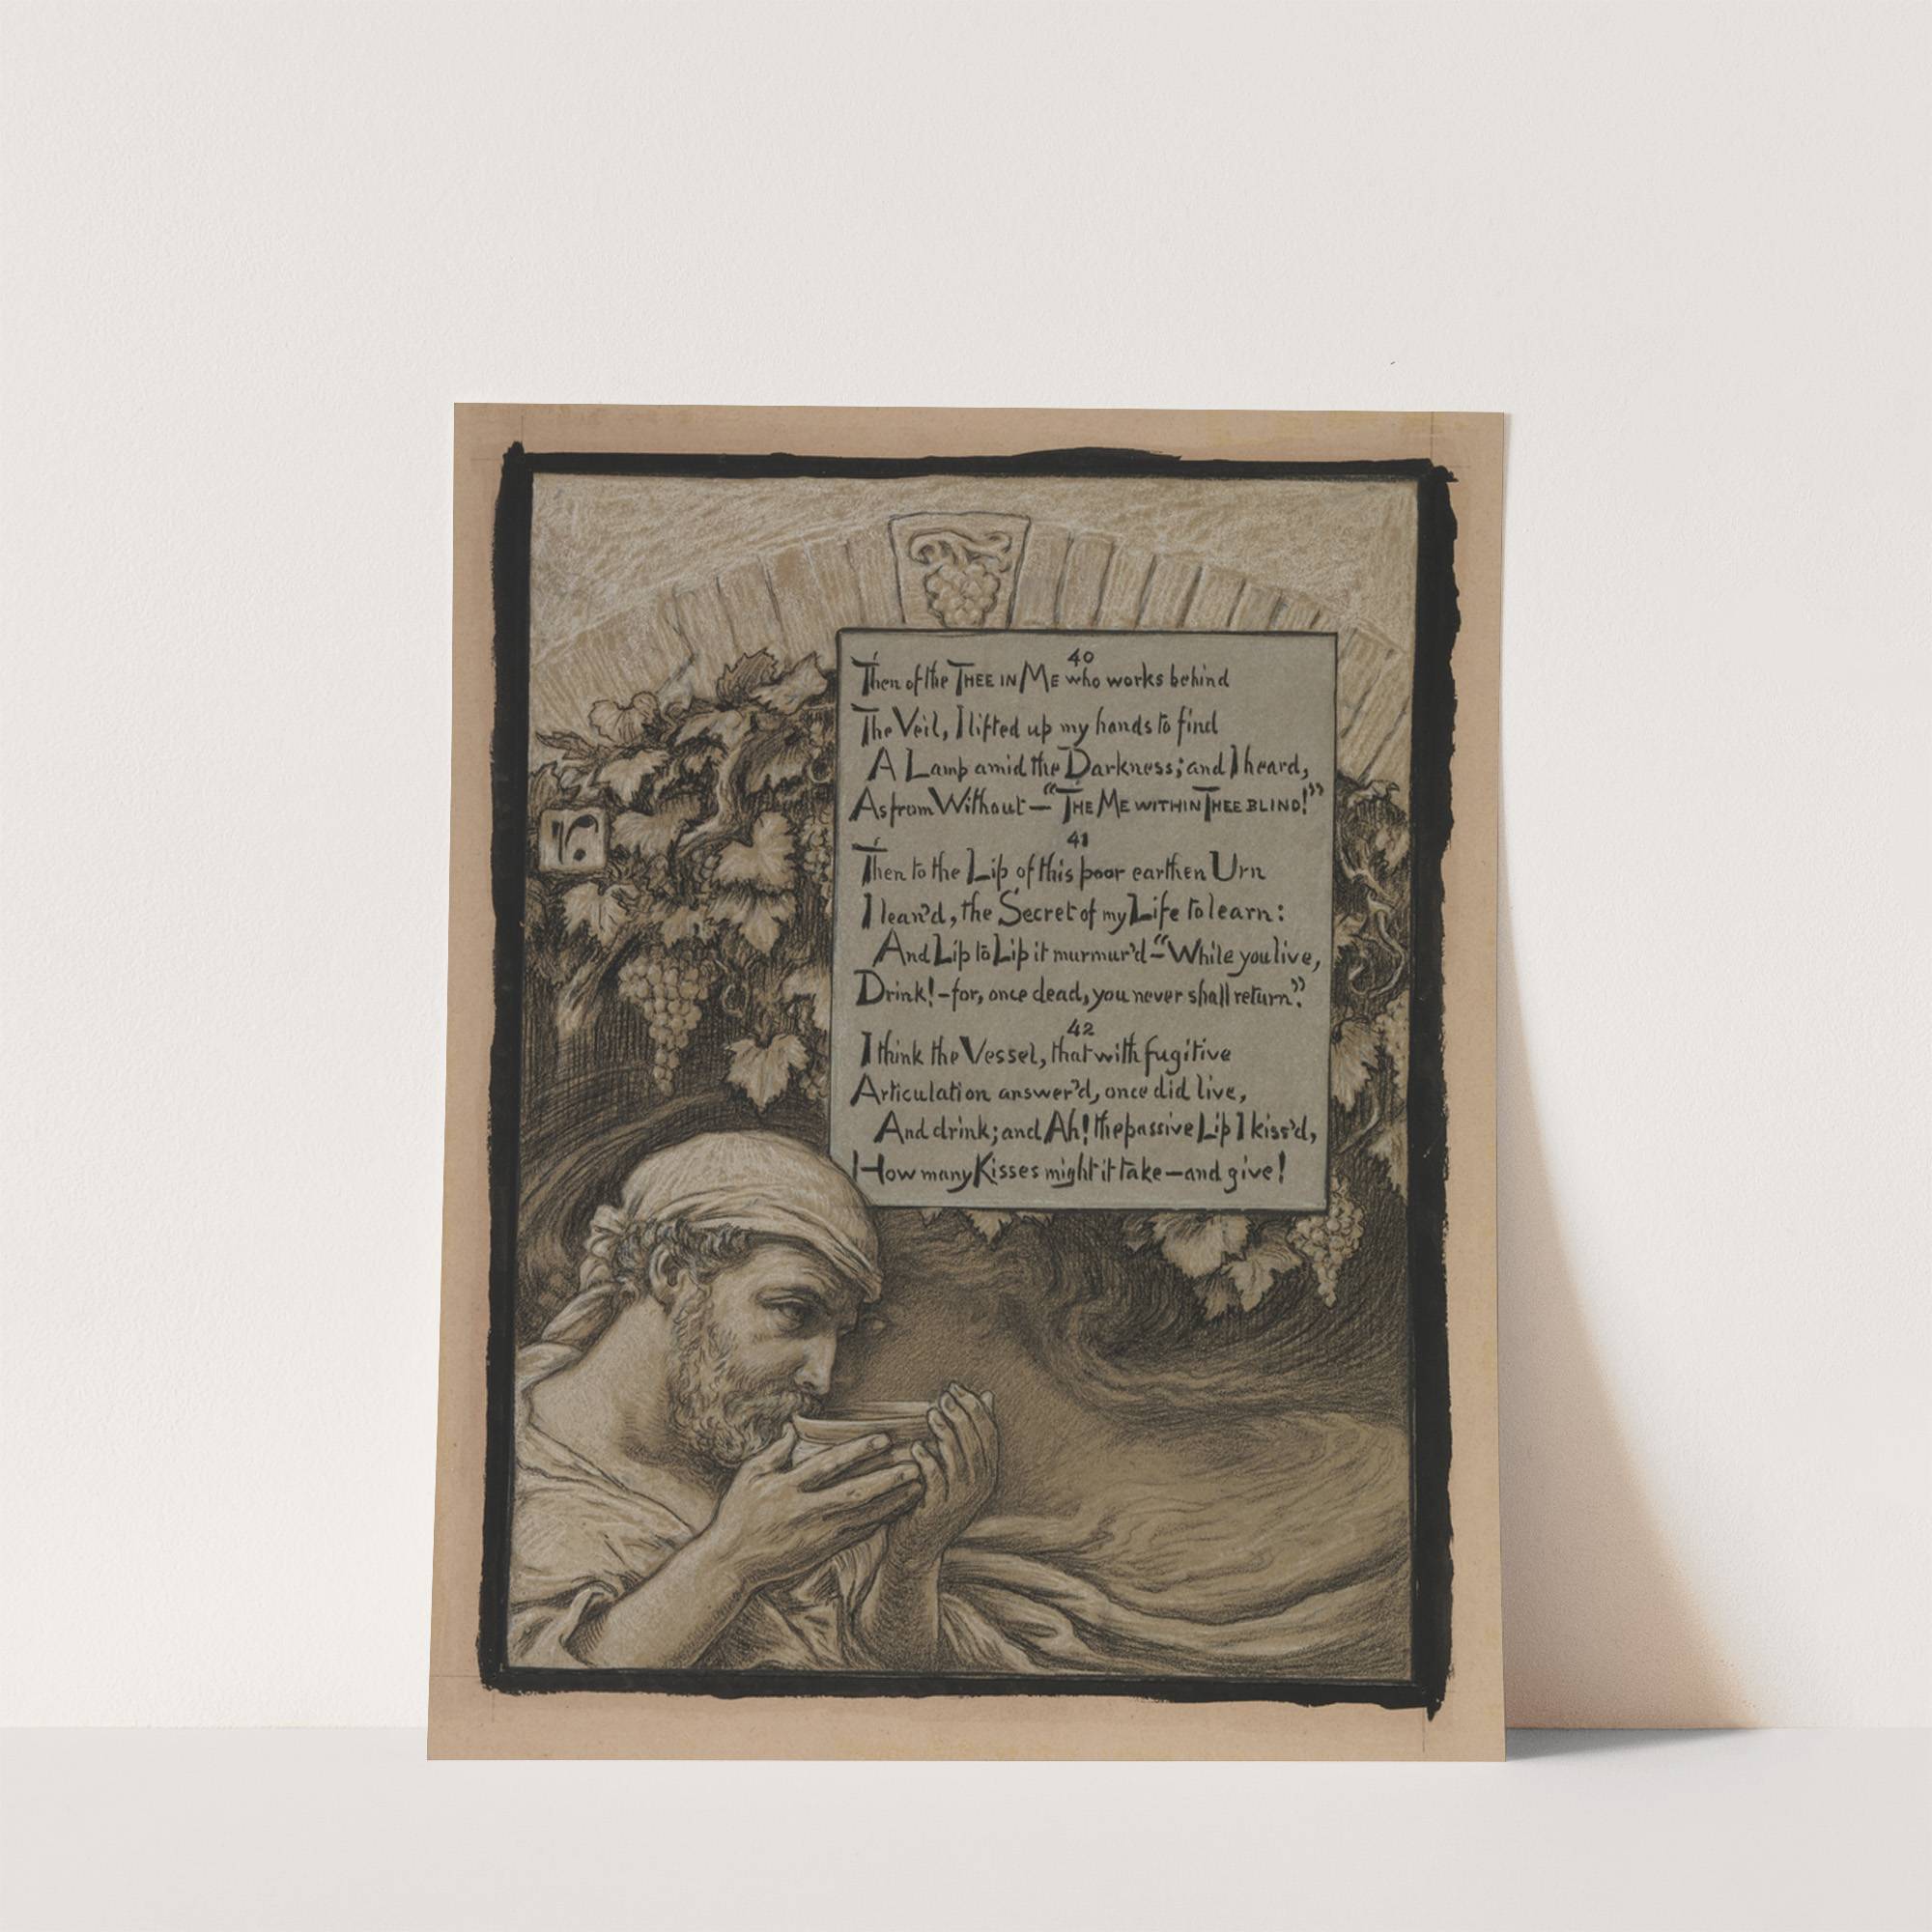 40
Then of the THEE IN ME who works behind
The Veil, I lifted up my hands to find
A Lamp amid the Darkness; and I heard,
As from Without—"THE ME WITHIN THEE BLIND!"
41
Then to the Lip of this poor earthen Urn
I lean'd, the Secret of my Life to learn:
And Lip to Lip it murmur'd—"While you live,
Drink!—for, once dead, you never shall return."
42
I think the Vessel, that with fugitive
Articulation answer'd, once did live,
And drink; and Ah! the passive Lip I kiss'd,
How many Kisses might it take—and give!